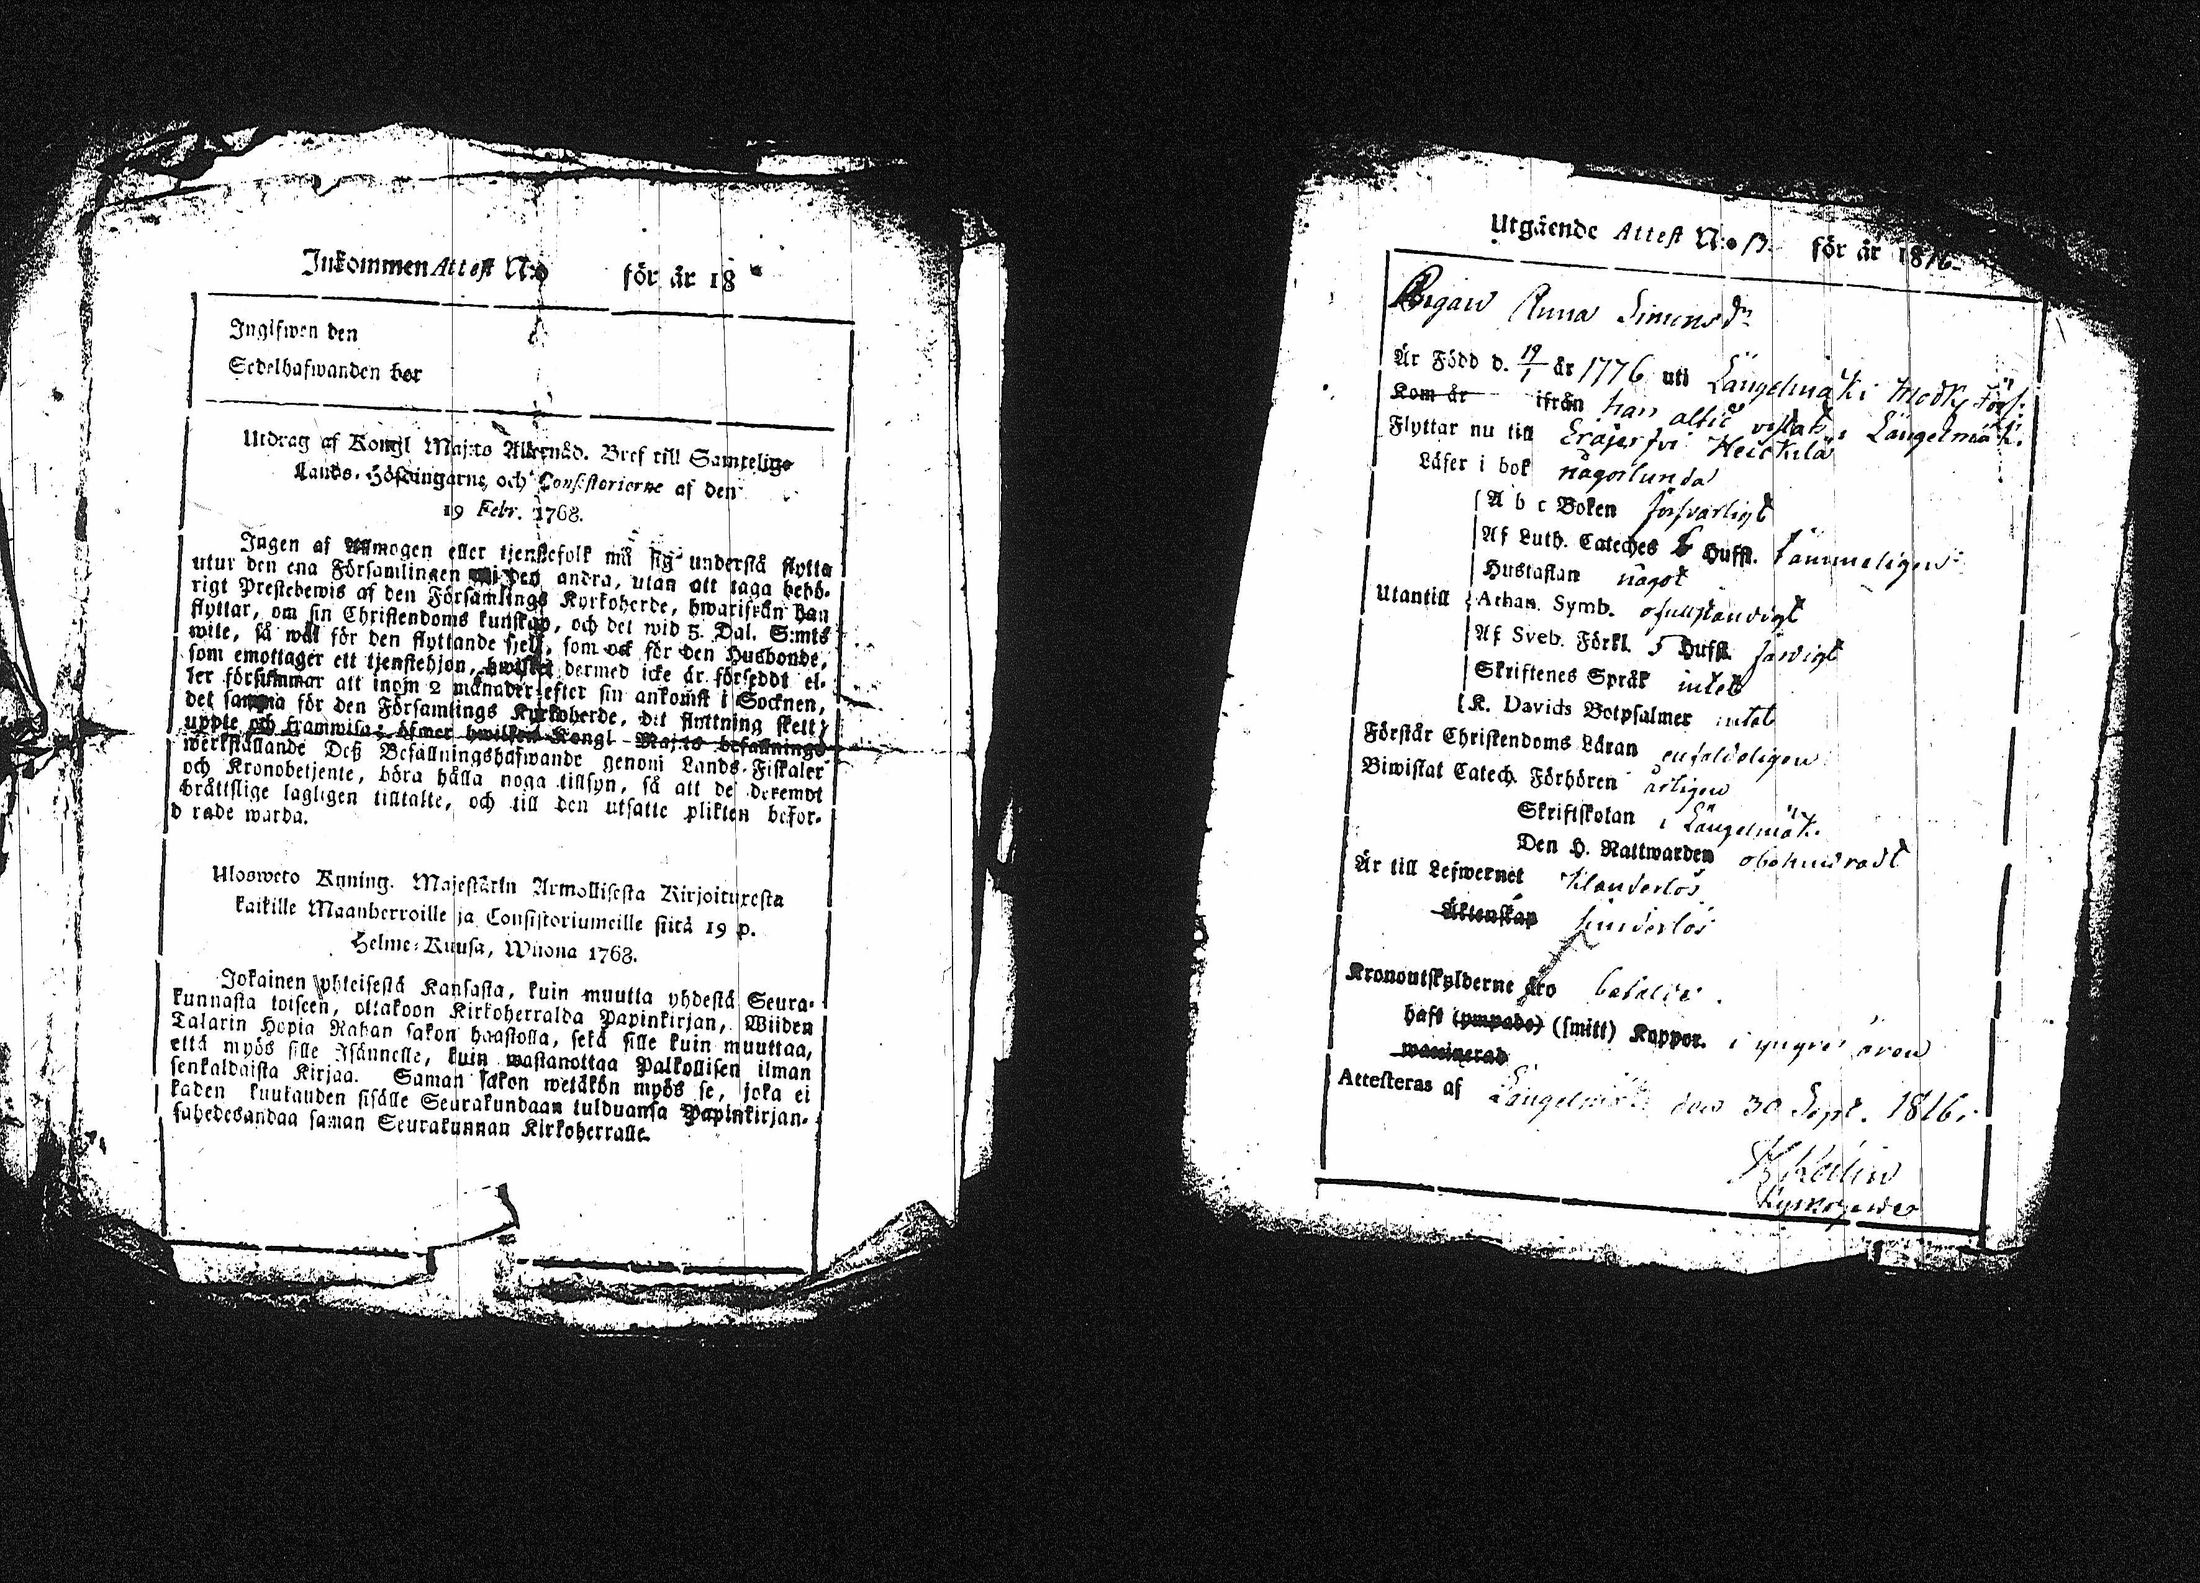 Inkommen Attest N:o för år 18
Ingifwen den
Sedelhafwanden bor
Utdrag af Kongl Maj:ts Allernåd. Bref till Samtelige
Lands-Höfdingarne och Consistorierne af den
19 Febr. 1768.
Ingen af Allmogen eller tjenstefolk må sig understå flytta
utur den ena Församlingen i den andra, utan att taga behö-
rigt Prestebewis af den Församlings Kyrkoherde, hwarifrån han
flyttar, om sin Christendoms kunskap, och det wid 5. Dal. S:mts
wite, så wäl för den flyttande sjelf, som ock för den Husbonde,
som emottager ett tjenstehjon, hwilket dermed icke är förseddt el-
ler försummar att inom 2 månader efter sin ankomst i Socknen,
det samma för den Församlings Kyrkoherde, dit flyttning skett,
uppte och framwisa; öfwer hwilken Kongl Maj:ts befallnings
werkställande Deß Befallningshafwande genom Lands-Fiskaler
och Kronobetjente, böra hålla noga tillsyn, så att de deremot
bråttslige lagligen tilltalte, och till den utsatte plikten befor-
drade warda.
Ulosweto Kuning. Majestätin Armollisesta Kirjoituxesta
kaikille Maanherroille ja Consistoriumeille siitä 19 p.
Helme-Kuusa, Wuona 1768.
Jokainen yhteisestä Kansasta, kuin muutta yhdestä Seura-
kunnasta toiseen, ottakoon Kirkoherralda Papinkirjan, Wiiden
Talarin Hopia Rahan sakon haastolla, sekä sille kuin muuttaa,
että myös sille Isännelle, kuin wastanottaa Palkollisen ilman
senkaldaista Kirjaa. Saman sakon wetäkön myös se, joka ei
kaden kuukauden sisälle Seurakundaan tulduansa Papinkirjan-
sa hedesandaa saman Seurakunnan Kirkoherralle.
Utgående Attest N:o 13. för år 1816.
Pigan Anna Simonsdr
Är Född d. 19/1 år 1776 uti Längelmäki Modk Förs:
Kom år ifrån har altid vistats i Längelmäki
Flyttar nu till Eräjerfvi Heickilä
Läser i bok någorlunda
A b c Boken försvarligt
Af Luth. Cateches 6 Hufst. tämmeligen
Hustaflan något
Utantill Athan. Symb. ofullständigt
Af Sveb. Förkl. 5 Hufst. färdigt
Skriftenes Språk intet
K. Davids Botpsalmer intet
Förstår Christendoms Läran enfaldeligen
Biwistat Catech. Förhören årligen
Skriftskolan i Längelmäki
Den H. Nattwarden obehindradt
Är till Lefwernet klanderlös
Äktenskap hinderlös
Kronoutskylderne äro betalde.
haft (ympade) (smitt) Koppor. i yngre åren
waccinerad
Attesteras af Längelmäki den 30 Sept. 1816.